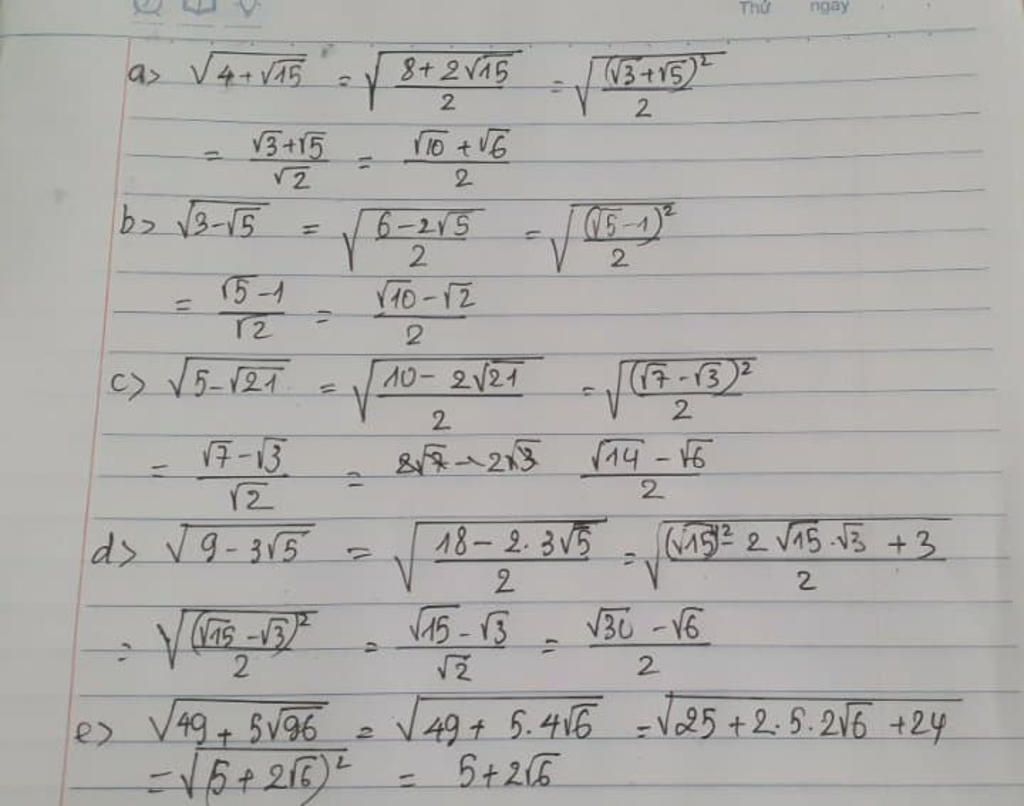 Thứ ngày
a> √(4+√15) = √((8+2√15)/2) = √((√3+√5)²/2)
= (√3+√5)/√2 = (√10+√6)/2
b> √(3-√5) = √((6-2√5)/2) = √((√5-1)²/2)
= (√5-1)/√2 = (√10-√2)/2
c> √(5-√21) = √((10-2√21)/2) = √((√7-√3)²/2)
= (√7-√3)/√2 = (√14-√6)/2
d> √(9-3√5) = √((18-2.3√5)/2) = √(((√15)²-2√15.√3+3)/2)
= √((√15-√3)²/2) = (√15-√3)/√2 = (√30-√6)/2
e> √(49+5√96) = √(49+5.4√6) = √(25+2.5.2√6+24)
= √(5+2√6)² = 5+2√6